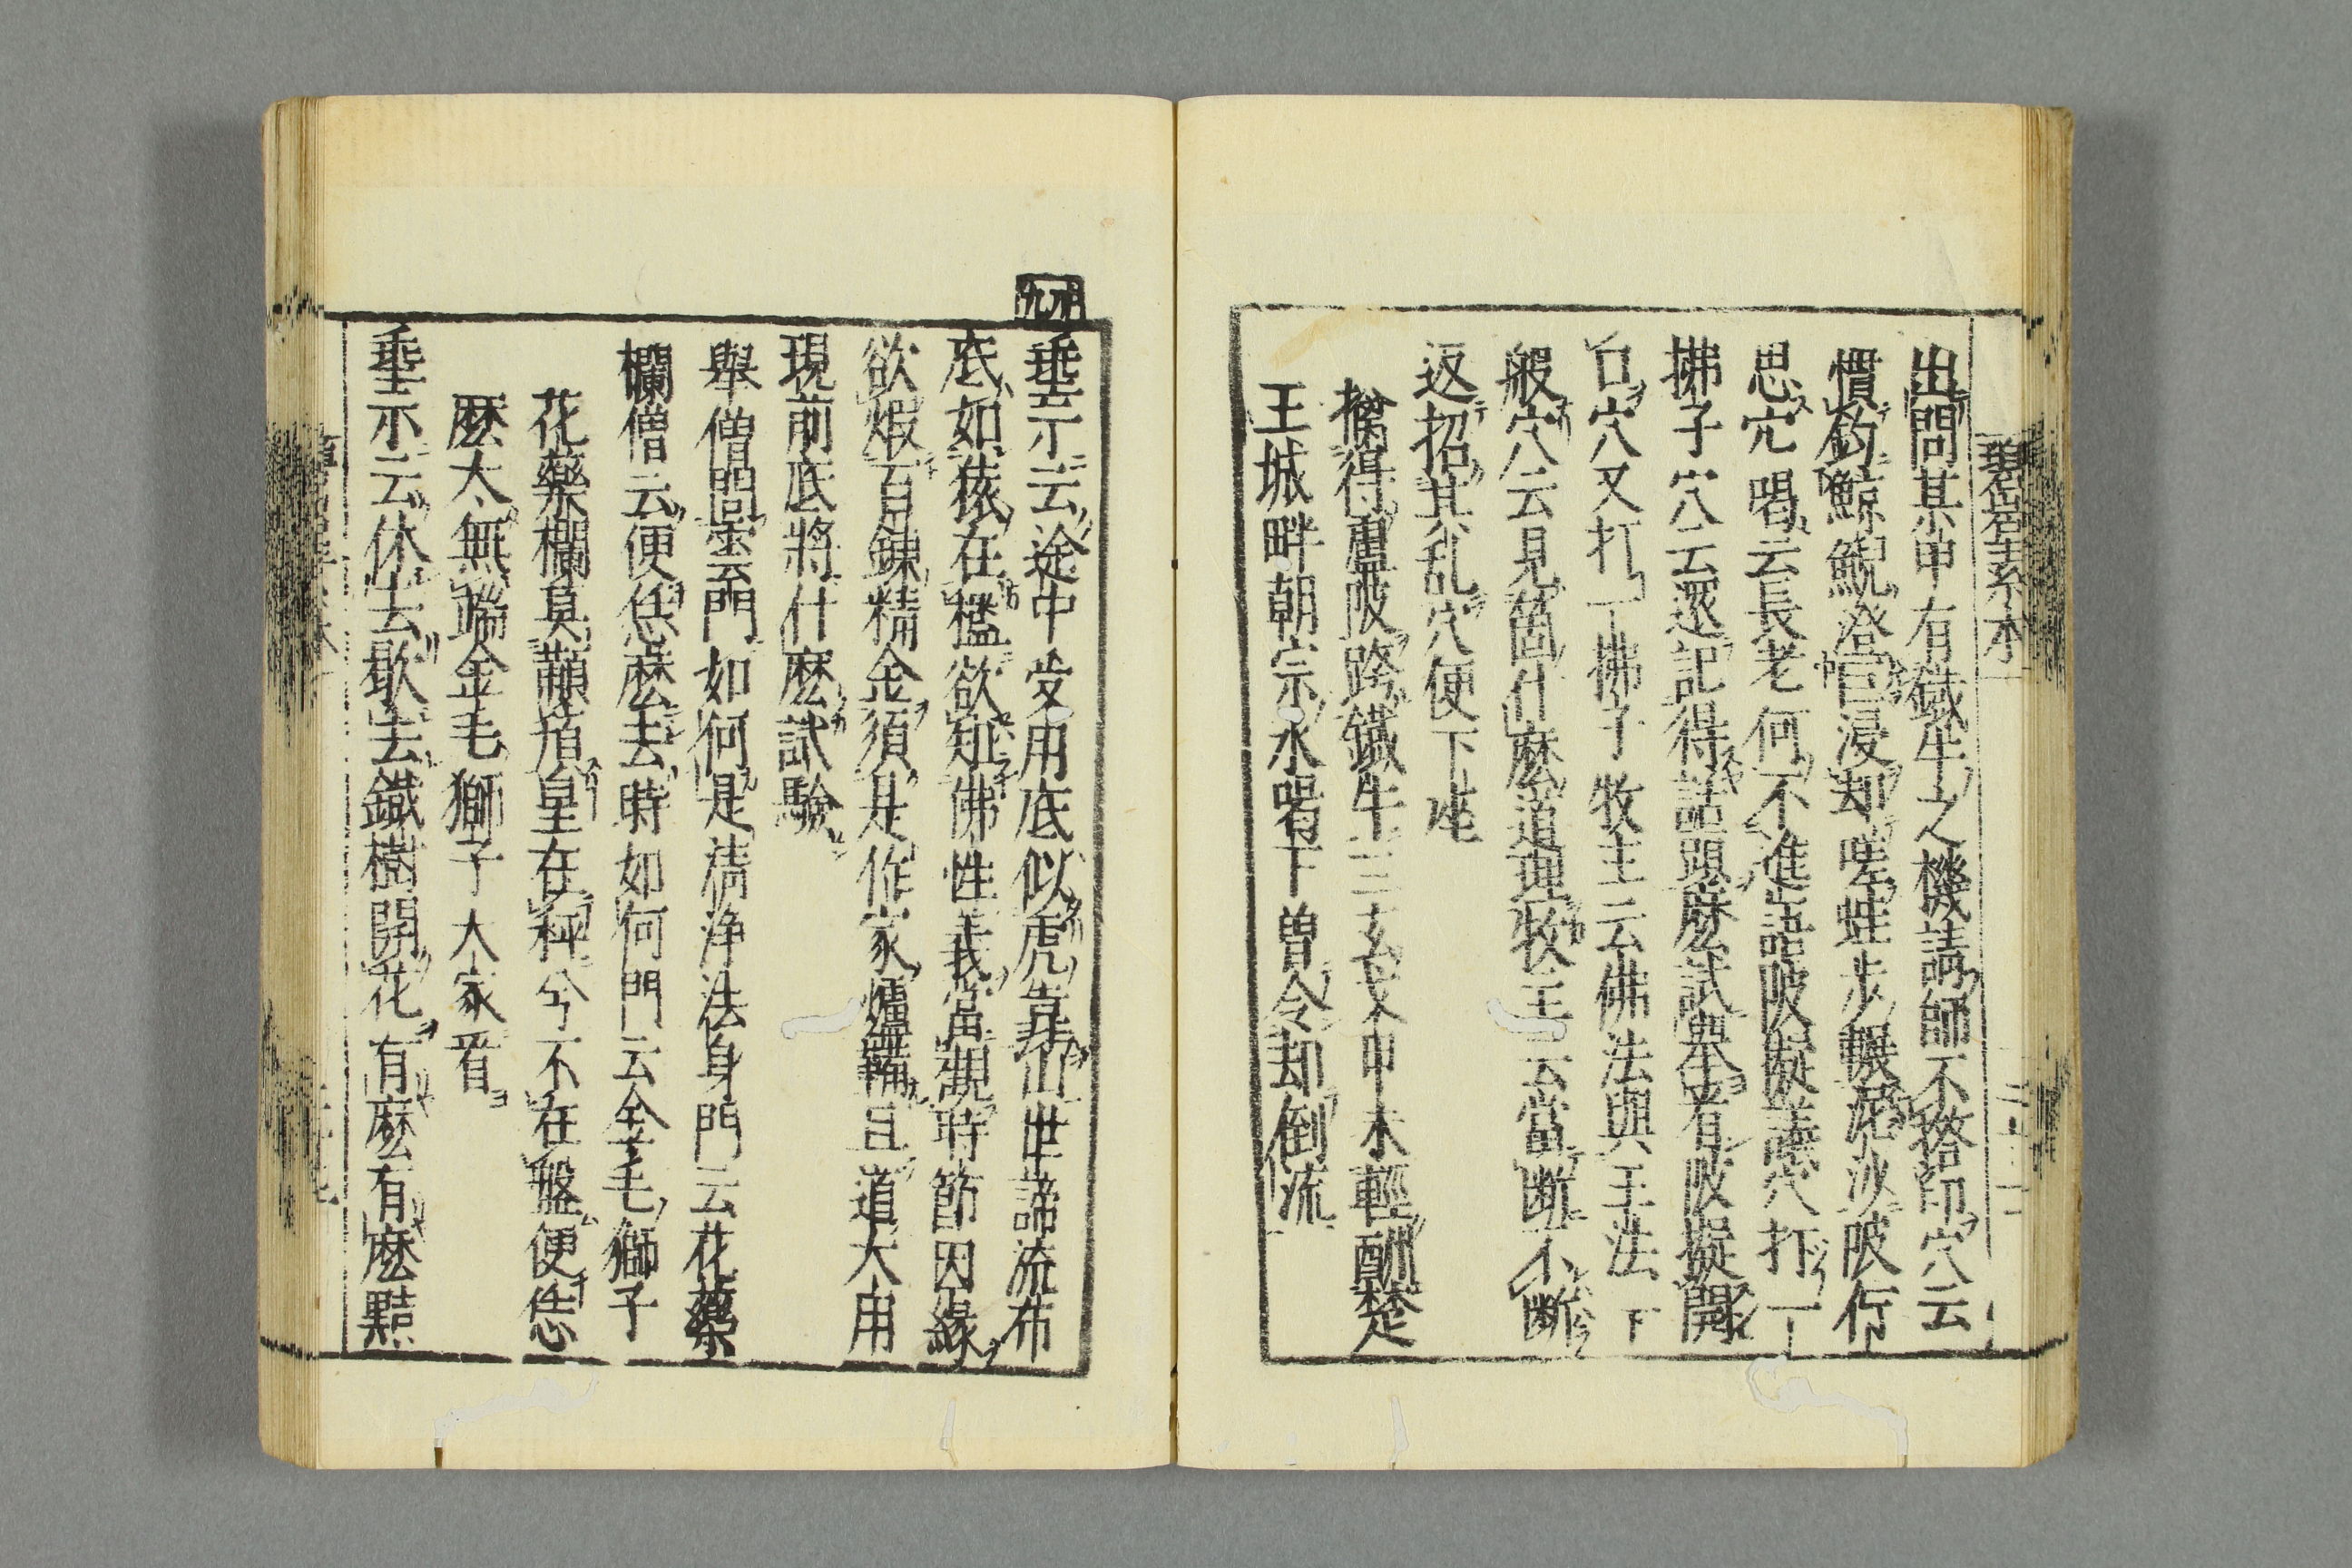 碧岩素本
出問某甲有鐵牛之機請師不搭印穴云
慣釣鯨鯢澄巨浸却嗟蛙步輾泥沙陂佇
思穴喝云長老何不進語陂擬議穴打一丁
拂子穴云還記得話頭麼試舉看陂擬開
口穴又打一丁拂子牧主云佛法與王法一
般穴云見箇什麼道理牧主云當断不断
返招其乱穴便下座
擒得盧陂跨鐵牛三玄戈甲未輕酬楚
王城畔朝宗水喝下曽令却倒流
垂示云途中受用底似虎靠山世諦流布
底如猿在檻欲知佛性義當觀時節因緣
欲煆百鍊精金須是作家爐鞴且道大用
現前底將什麼試驗
舉僧問雲門如何是清浄法身門云花藥
欄僧云便恁麼去時如何門云金毛獅子
花藥欄莫顢頇星在秤兮不在盤便恁
麼太無端金毛獅子大家看
垂示云休去歇去鐵樹開花有麼有麼黠